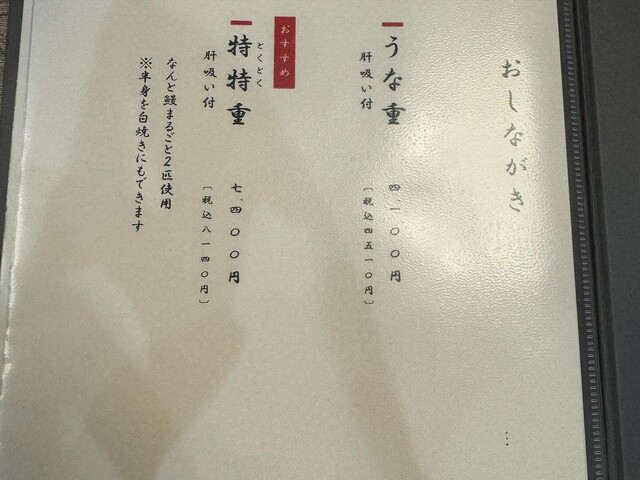 おしながき
うな重
肝吸い付
四、一〇〇円
〔税込四五一〇円〕
おすすめ
とくとく
特特重
肝吸い付
七、四〇〇円
〔税込八一四〇円〕
なんと鰻まるごと2匹使用
※半身を白焼きにもできます